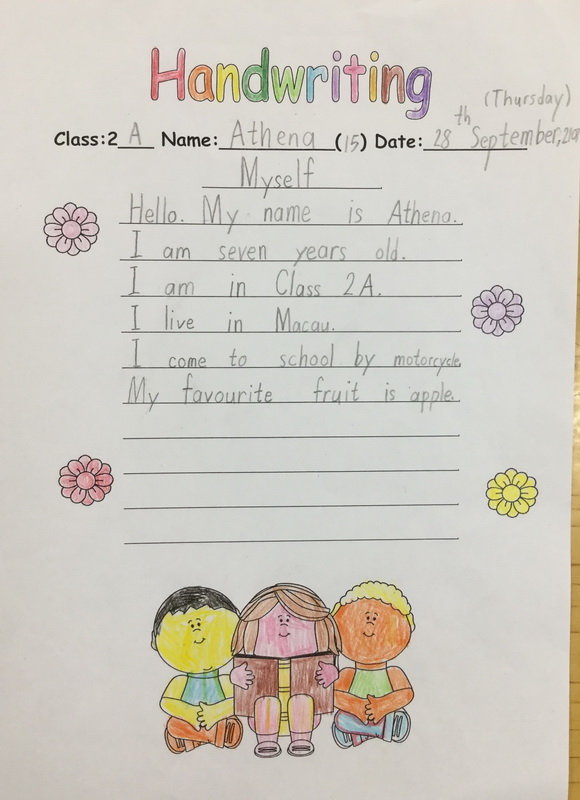 Handwriting
(Thursday)
Class:2 A Name: Athena (15) Date: 28th September,
Myself
Hello. My name is Athena.
I am seven years old.
I am in Class 2A.
I live in Macau.
I come to school by motorcycle.
My favourite fruit is apple.